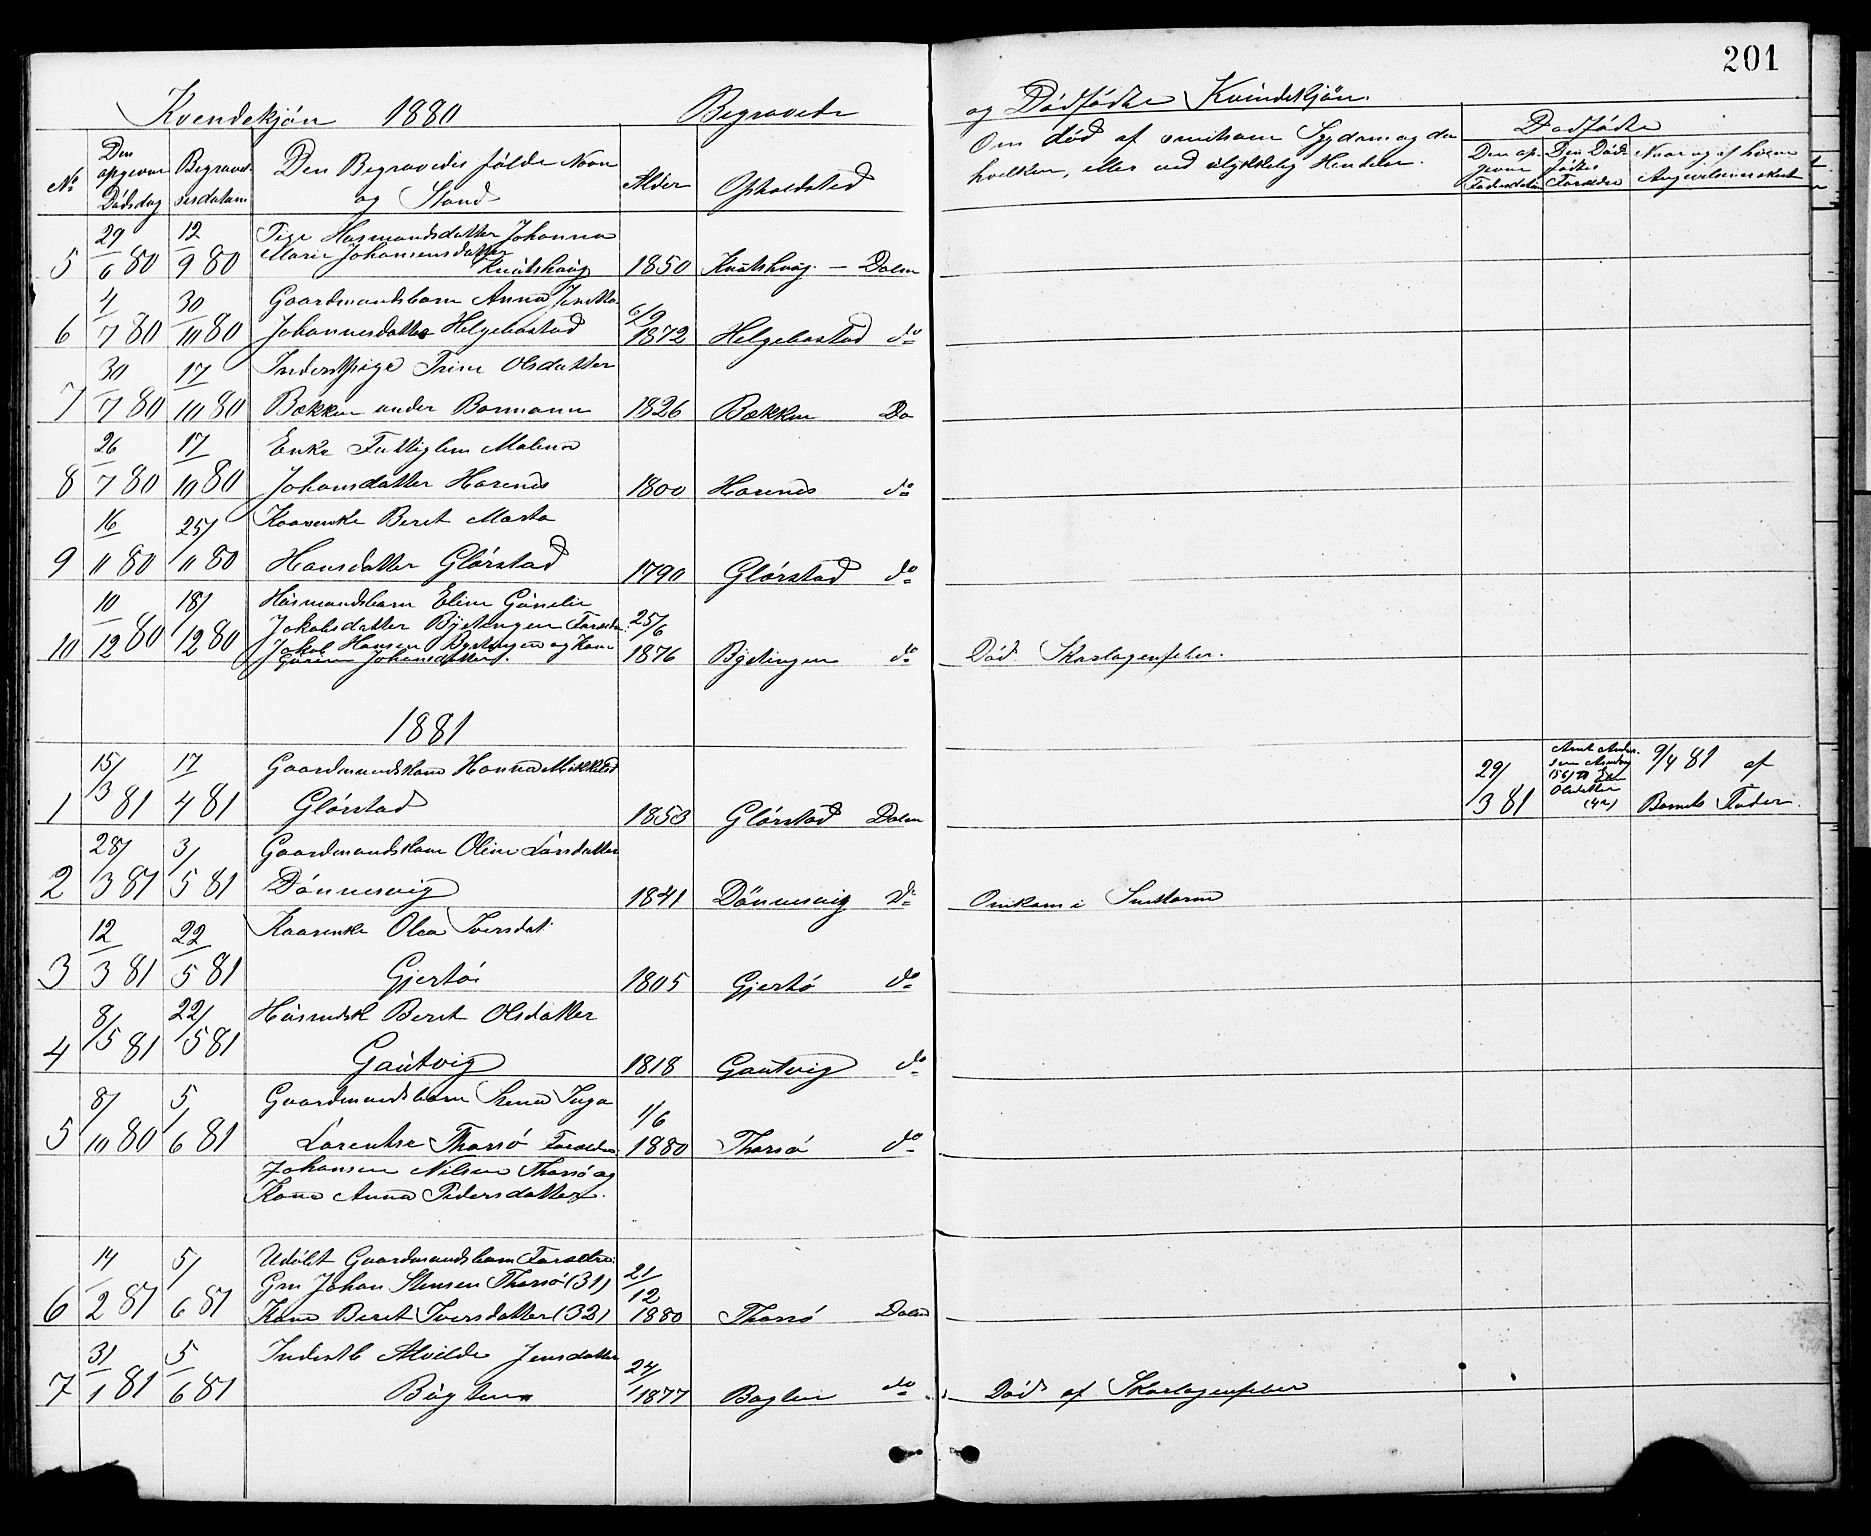 201
Kvendekjøn 1880 Begravede
og Dødfødte Kvindekjøn.
No
Den opgevne Dødsdag
Begravelsesdatum
Den Begravedes fulde Navn
og Stand
Alder
Opholdsted
Om død af smitsom Sygdom og da
hvilken, eller ved ulykkelig Hendelse.
Dødfødte
Den opgevne Fødselsdatum
Den Dødfødtes Forældre
Naar og af hvem
Angivelsen er skeet
5 29/6 80 12/9 80 Pige Husmandsdatter Johanna
Marie Johansensdatter
Knutshaug 1850 Knutshaug — Dolm
6 4/7 80 30/10 80 Gaardmandsbarn Anna
Johannesdatter Helgebostad 6/9 1872 Helgebostad do
7 30/7 80 17/10 80 Inderstpige Trine Olsdatter
Bekken under Bormann 1826 Bekken Do
8 26/7 80 17/10 80 Enke Fattiglem Malena
Johansdatter Havnes 1800 Havnes do
9 16/11 80 25/11 80 Kaarenke Beret Marta
Hansdatter Glørstad 1790 Glørstad do
10 10/12 80 18/12 80 Husmandsbarn Eline Gunelie
Jakobsdatter Bystingen Forældre:
Jakob Hansen Bystingen og Kone
Johansdatter. 25/6 1876 Bystingen do Død Skarlagensfeber.
1881
1 15/3 81 17/4 81 Gaardmandskone Hanna Mikkelsd
Glørstad 1853 Glørstad Dolm
29/3 81
Olsdatter
(42)
9/4 81 af
Barnets Fader.
2 28/3 81 3/5 81 Gaardmandskone Oline Larsdatter
Dønnesvig 1841 Dønnesvig do Omkom i Snestorm
3 12/3 81 22/5 81 Kaarenke Olea Iversdat.
Gjertø 1805 Gjertø do
4 8/5 81 22/5 81 Husmdsk Beret Olsdatter
Gautvig 1818 Gautvig do
5 8/10 80 5/6 81 Gaardmandsbarn Stena Inga
Larentse Thorsø Forældre 1/6 1880 Thorsø do
Johansen Nilsen Thorsø og
Kone Anna Pedersdatter.
6 14/2 81 5/6 81 Udøbt Gaardmandsbarn Forældre:
Grm Johan Stensen Thorsø (31)
Kone Beret Iversdatter (32) 21/12 1880 Thorsø Dolm
7 31/1 81 5/6 81 Inderstb Alvilde Jensdatter
Boglen 24/1 1877 Boglen do Død af Skarlagensfeber